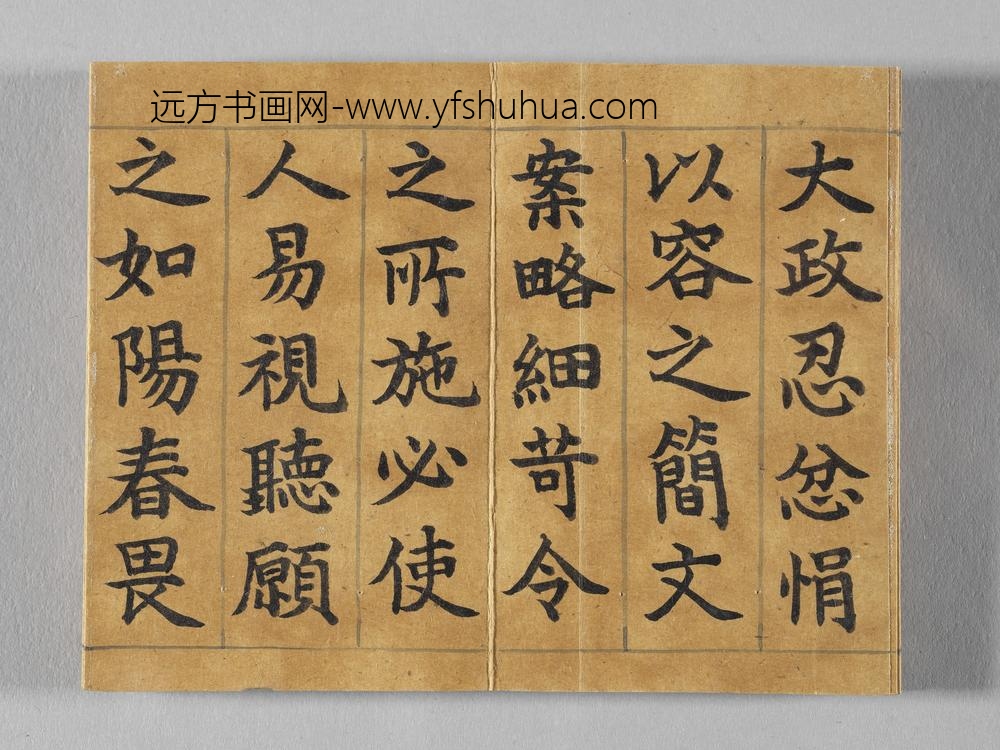 远方书画网-www.yfshuhua.com
大政忍忿悁
以容之簡文
案略細苛令
之所施必使
人易視聽願
之如陽春畏